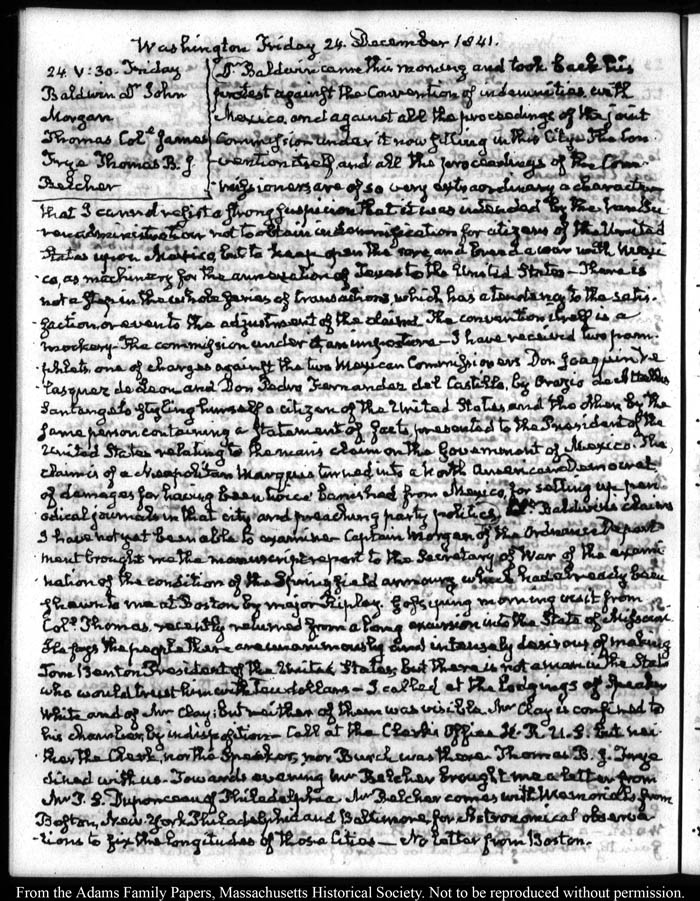 Washington Friday 24. December 1841.
24. V:30. Friday
Baldwin Dr. John
Morgan
Thomas Col.l James
Frye Thomas B. J
Belcher
Dr. Baldwin came this morning and took back his
protest against the Convention of indemnities with
Mexico, and against all the proceedings of the joint
Commission under it now sitting in this City. The Con-
vention itself and all the proceedings of the Com-
missioners are of so very extraordinary a character
that I cannot resist a strong suspicion that it was intended by the Van Bu-
ren administration not to obtain indemnification for citizens of the United
States upon Mexico, but to keep open the sore and breed a war with Mexi-
co, as machinery for the annexation of Texas to the United States — There is
not a step in the whole series of transactions, which has a tendency to the satis-
faction or even to the adjustment of the claims. The convention itself is a
mockery. The commission under it an imposture — I have received two pam-
phlets, one of charges against the two Mexican Commissioners Don Joaquin Ve
lasquez de Leon and Don Pedro Fernandez del Castillo, by Orazio de Attellis
Santangelo styling himself a citizen of the United States, and the other by the
same person containing a Statement of facts, presented to the President of the
United States relating to the man's claim on the Government of Mexico. The
claim is of a Neapolitan Marquis turned into a North American Democrat,
of damages for having been twice banished from Mexico, for setting up peri-
odical journals in that city and preaching party politics. Dr. Baldwin's claims
I have not yet been able to examine. Captain Morgan of the Ordnance Depart-
ment brought me the manuscript report to the Secretary of War of the exami-
nation of the condition of the Springfield armoury which had already been
shewn to me at Boston by major Ripley. Gossiping morning visit from
Col.l Thomas, recently returned from a long excursion into the State of Missouri.
He says the people there are unanimously and intensely desirous of making
Tom Benton President of the United States, but there is not a man in the State
who would trust him with ten dollars — I called at the lodgings of Speaker
White and of Mr Clay; but neither of them was visible. Mr Clay is confined to
his chamber, by indisposition — Call at the Clerk's Office H. R. U. S. but nei-
ther the Clerk, nor the Speaker, nor Burch was there. Thomas B. J. Frye
dined with us. Towards evening Mr Belcher brought me a letter from
Mr P. S. Duponceau of Philadelphia. Mr Belcher comes with Memorials from
Boston, New-York Philadelphia and Baltimore, for Astronomical observa-
tions to fix the longitudes of those Cities — No letter from Boston.
From the Adams Family Papers, Massachusetts Historical Society. Not to be reproduced without permission.